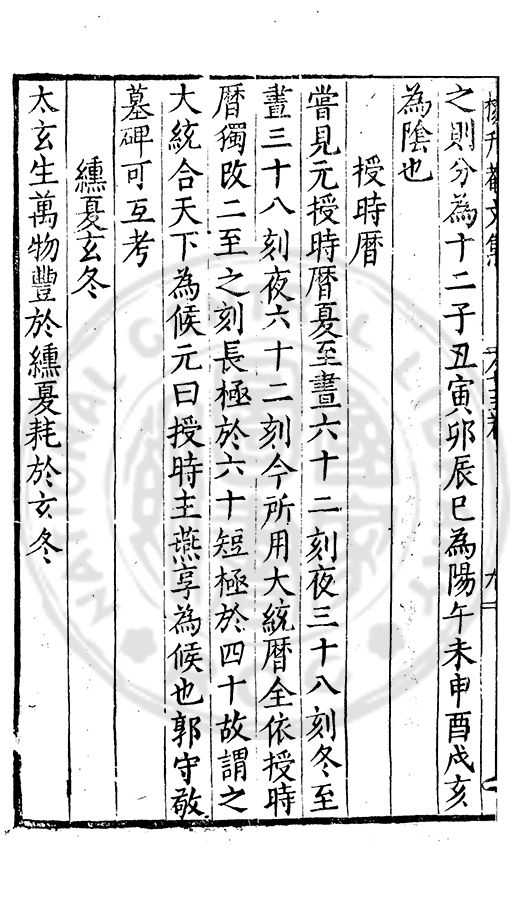 之則分為十二子丑寅卯辰巳為陽午未申酉戌亥
為陰也
授時曆
嘗見元授時曆夏至晝六十二刻夜三十八刻冬至
晝三十八刻夜六十二刻今所用大統曆全依授時
曆獨改二至之刻長極於六十短極於四十故謂之
大統合天下為候元曰授時主燕享為候也郭守敬
墓碑可互考
纁夏玄冬
太玄生萬物豐於纁夏耗於玄冬
NATIONAL CENTRAL LIBRARY